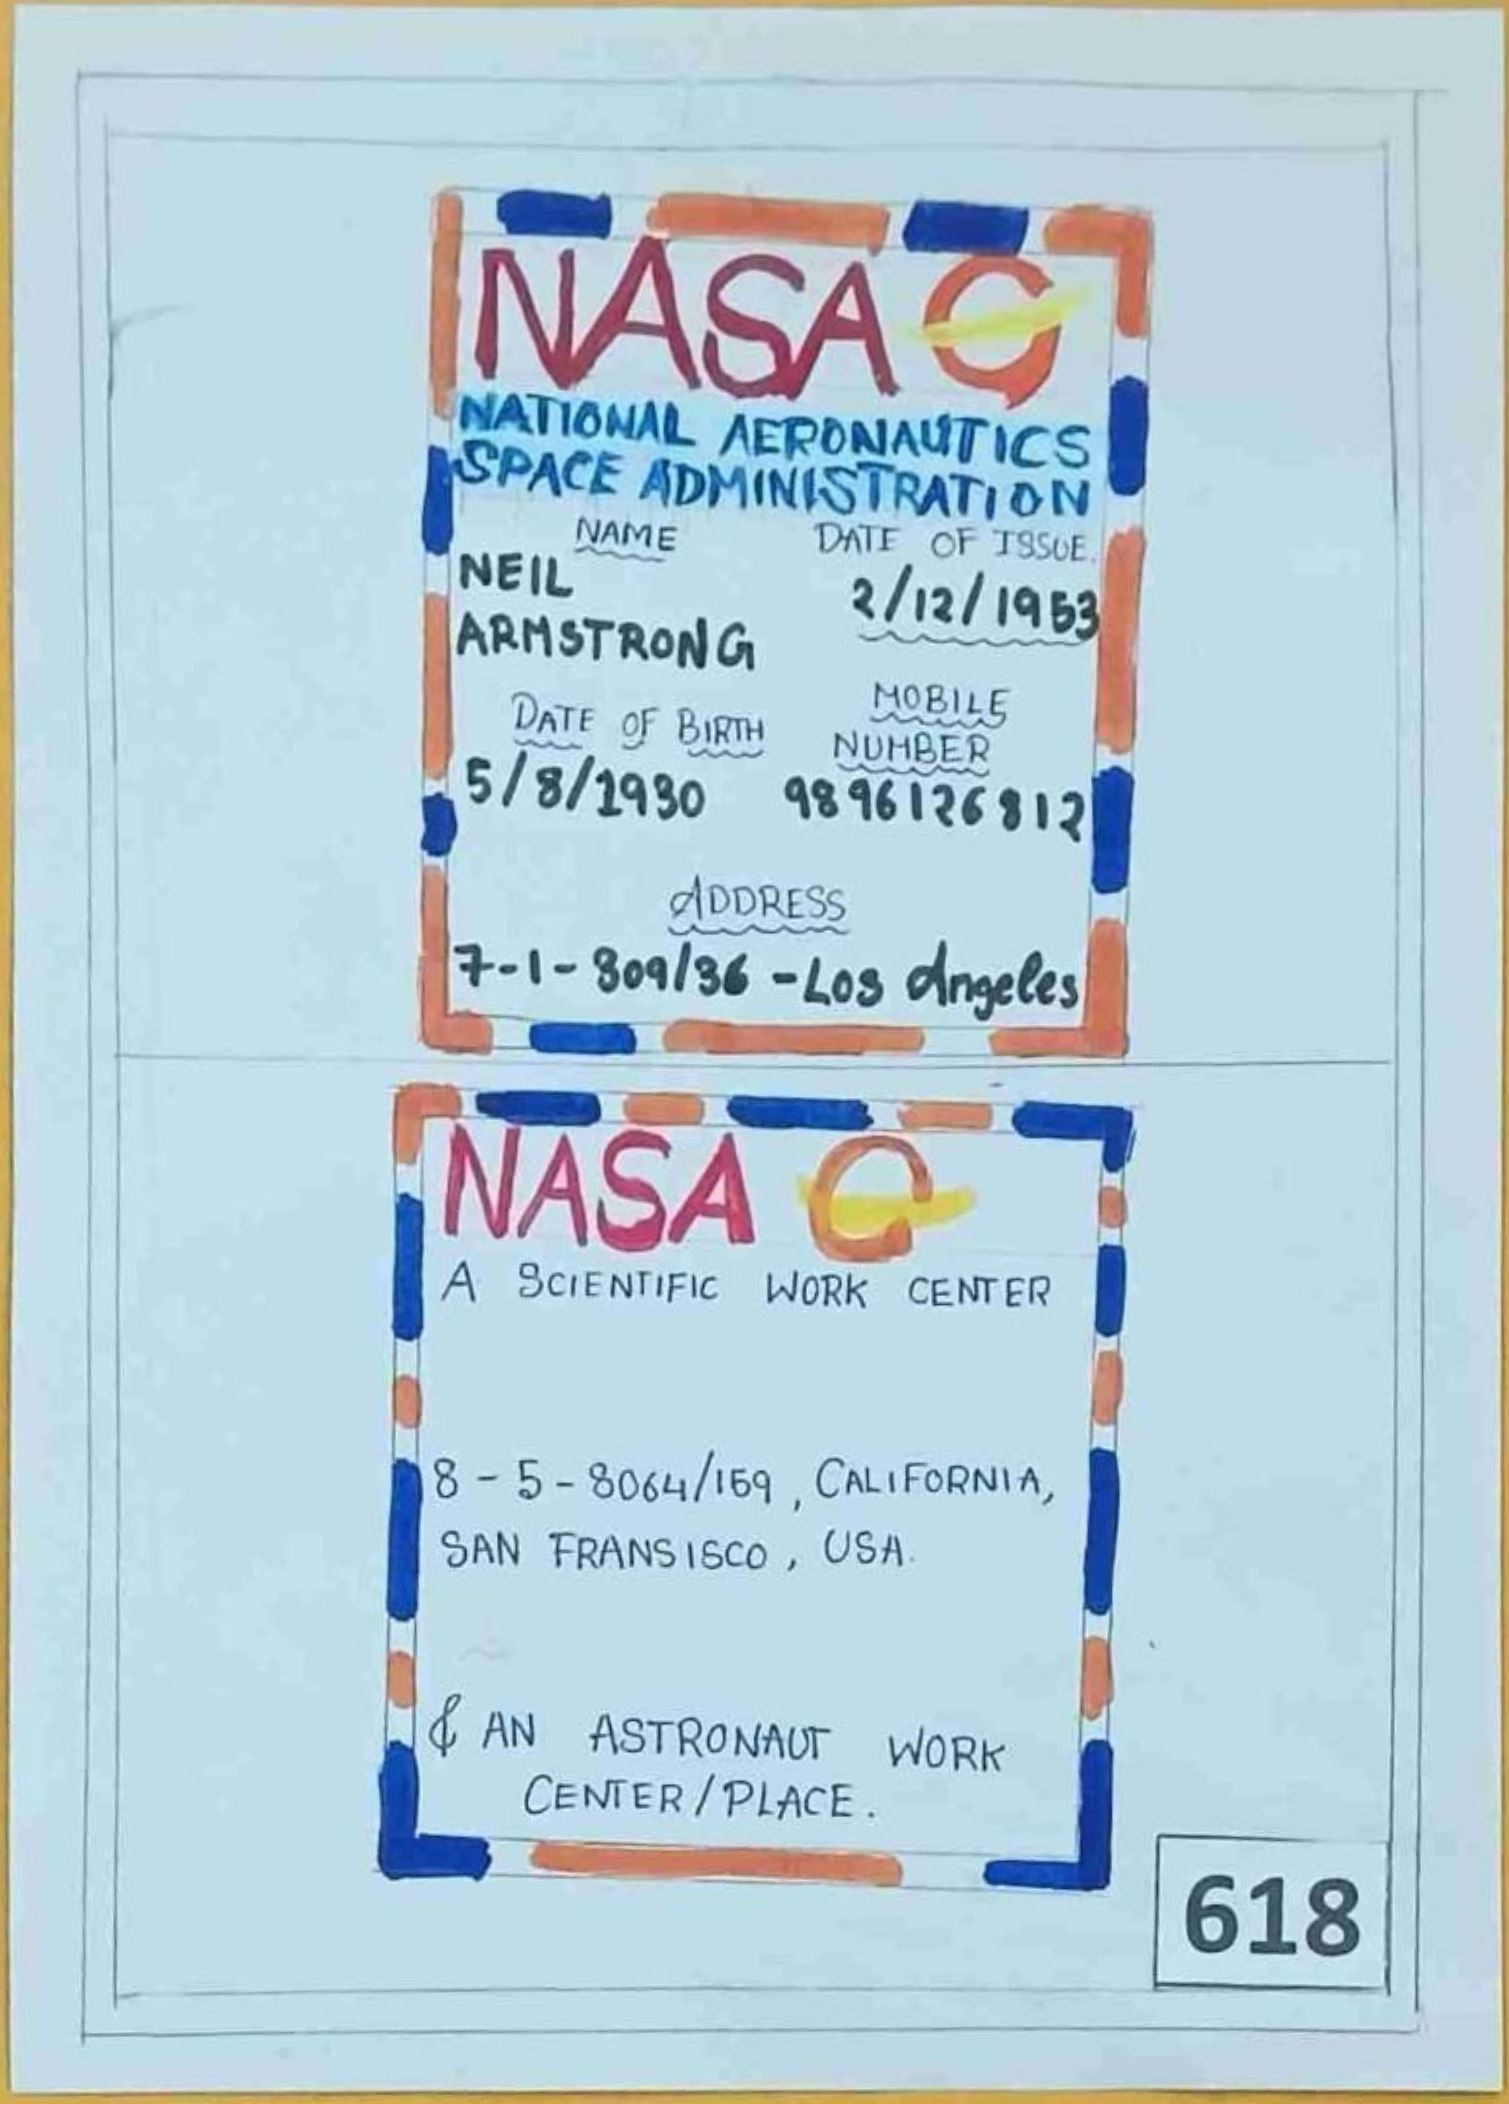 NASA
NATIONAL AERONAUTICS
SPACE ADMINISTRATION
NAME DATE OF ISSUE.
NEIL 2/12/1953
ARMSTRONG
DATE OF BIRTH MOBILE NUMBER
5/8/1930 9896126812
ADDRESS
7-1-809/36 - Los Angeles
NASA
A SCIENTIFIC WORK CENTER
8-5-8064/159, CALIFORNIA,
SAN FRANSISCO, USA.
& AN ASTRONAUT WORK
CENTER/PLACE.
618